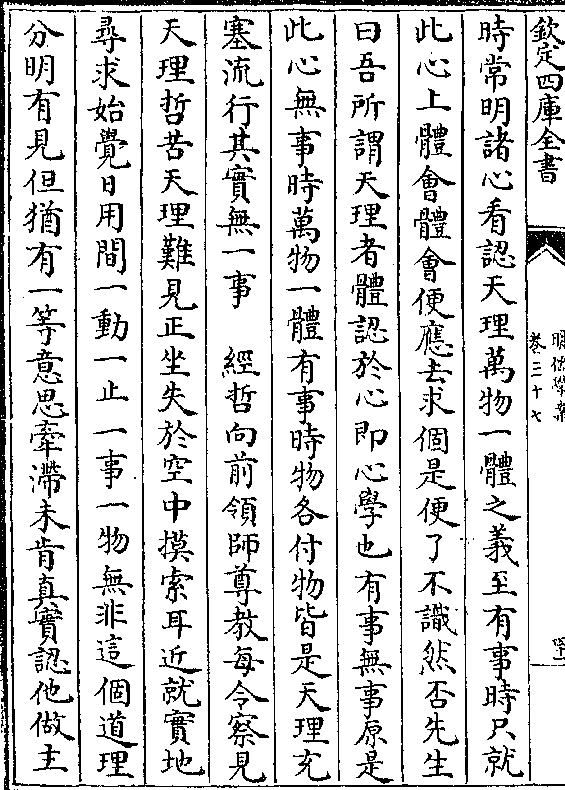 欽定四庫全書
明儒學案
卷三十七
時常明諸心看認天理萬物一體之義至有事時只就
此心上體會體會便應去求個是便了不識然否先生
曰吾所謂天理者體認於心即心學也有事無事原是
此心無事時萬物一體有事時物各付物皆是天理充
塞流行其實無一事　經哲向前領師尊教每令察見
天理哲苦天理難見正坐失於空中摸索耳近就實地
尋求始覺日用間一動一止一事一物無非這個道理
分明有見但猶有一等意思牽滯未肯真實認他做主